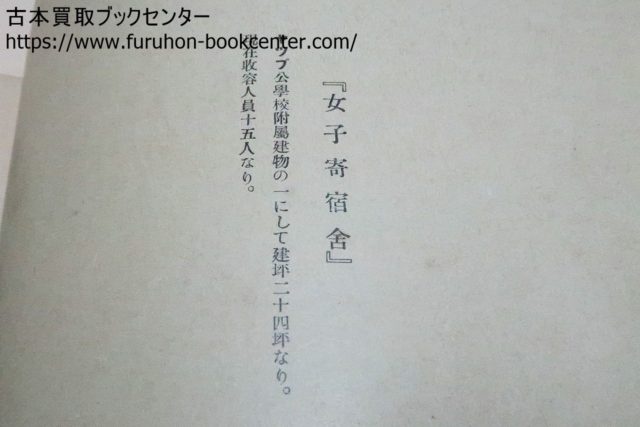 古本買取ブックセンター
https://www.furuhon-bookcenter.com/
『女子寄宿舍』
ヤップ公學校附屬建物の一にして建坪二十四坪なり。
現在收容人員十五人なり。